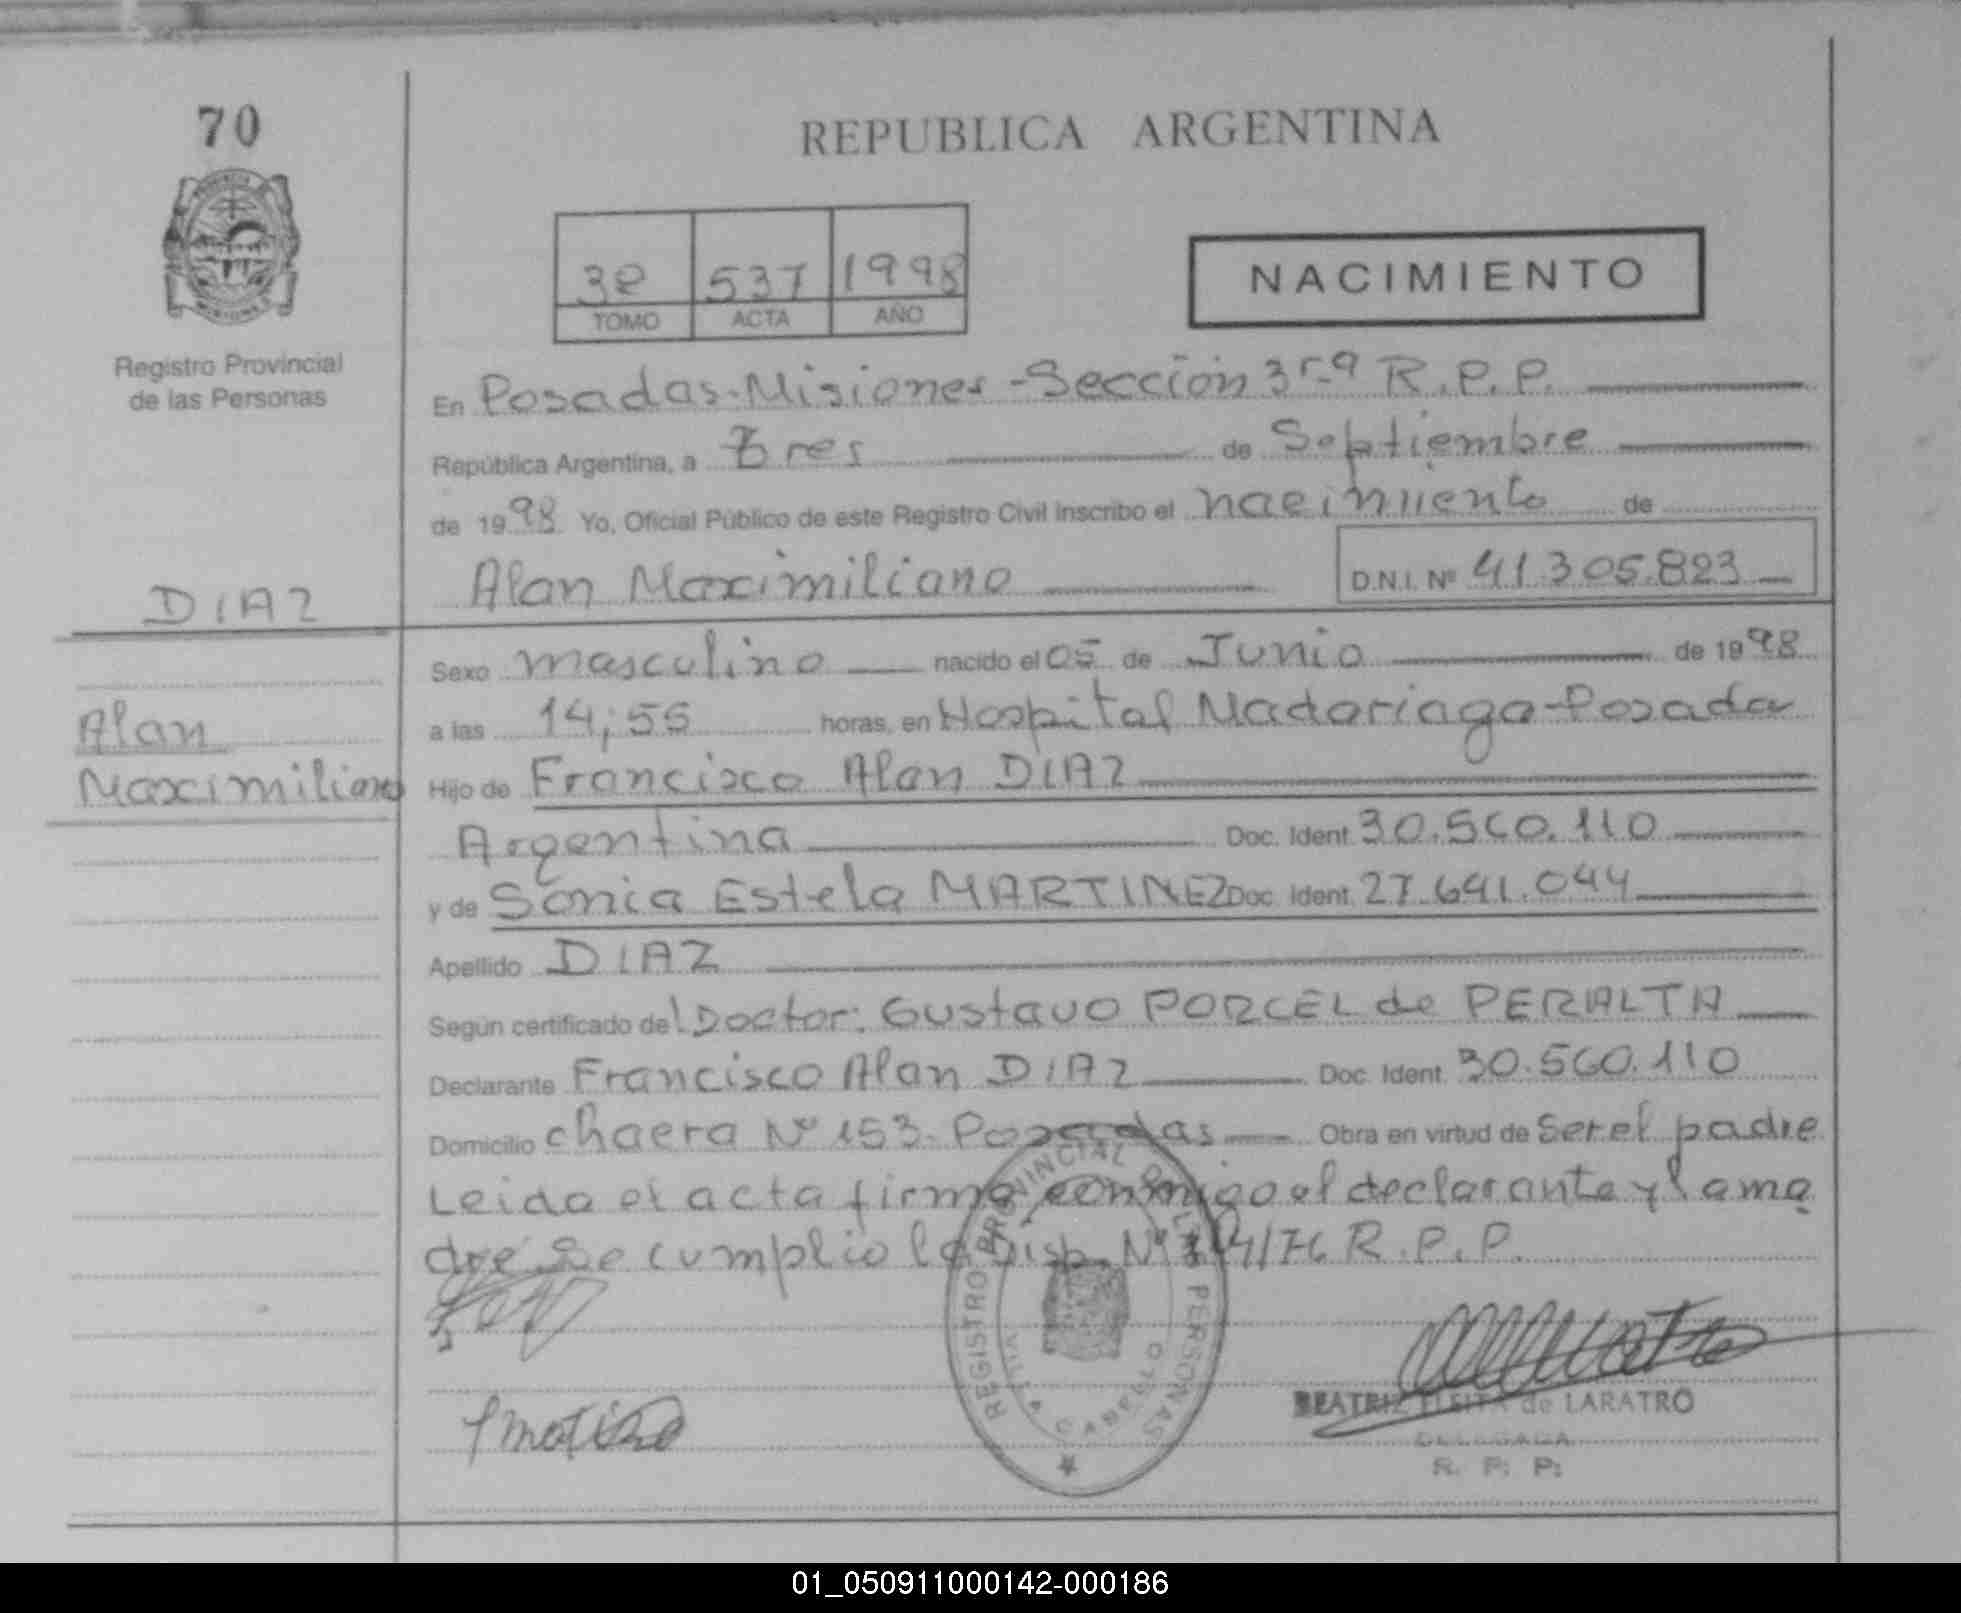 70
REPUBLICA ARGENTINA
3e 537 1998
TOMO ACTA AÑO
NACIMIENTO
Registro Provincial
de las Personas
En Posadas-Misiones-Sección 3ra R.P.P.
República Argentina, a Tres de Septiembre
de 1998 Yo, Oficial Público de este Registro Civil inscribo el nacimiento de
Alan Maximiliano D.N.I. Nº 41.305.823
DIAZ
Alan
Maximiliano
Sexo masculino nacido el 05 de Junio de 1998
a las 14;55 horas, en Hospital Madariaga-Posadas
Hijo de Francisco Alan DIAZ
Argentina Doc. Ident. 30.560.110
y de Sonia Estela MARTINEZ Doc. Ident. 27.641.044
Apellido DIAZ
Según certificado del Doctor: Gustavo PORCEL de PERALTA
Declarante Francisco Alan DIAZ Doc. Ident. 30.560.110
Domicilio chacra Nº 153-Posadas Obra en virtud de Ser el padre
Leida el acta firma conmigo el declarante y la ma
dre Se cumplio la Disp. Nº /76 R.P.P.
REGISTRO PROVINCIAL DE LAS PERSONAS
VILLA CABELLO
BEATRIZ de LARATRO
DELEGADA
R. P. P.
01_050911000142-000186